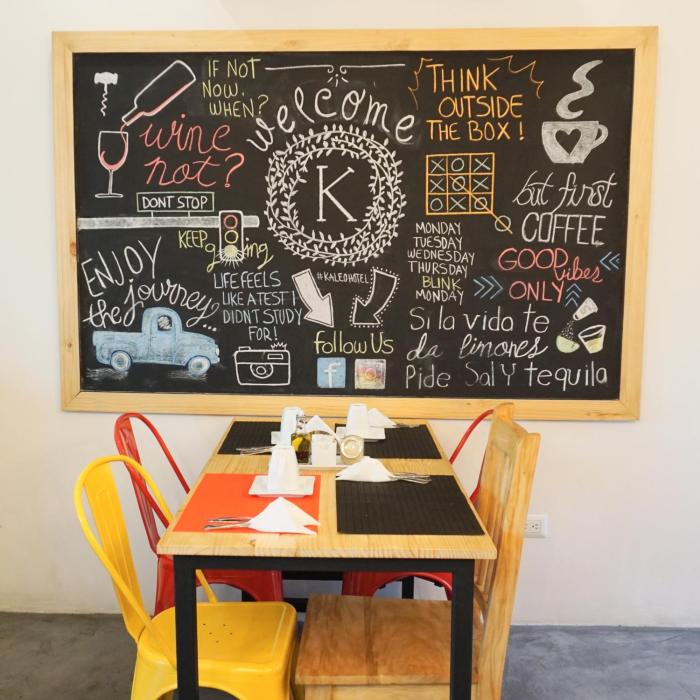 IF NOT
NOW,
WHEN?
welcome
K
THINK
OUTSIDE
THE BOX!
wine
not?
XOX
OXX
OXO
O
but first
COFFEE
DONT STOP
KEEP
going
MONDAY
TUESDAY
WEDNESDAY
THURSDAY
BLINK
MONDAY
GOOD
vibes
ONLY
ENJOY
the journey...
LIFE FEELS
LIKE A TEST I
DIDNT STUDY
FOR!
#KALEOHOTEL
follow Us
f
Si la vida te
da limones
Pide Sal Y tequila